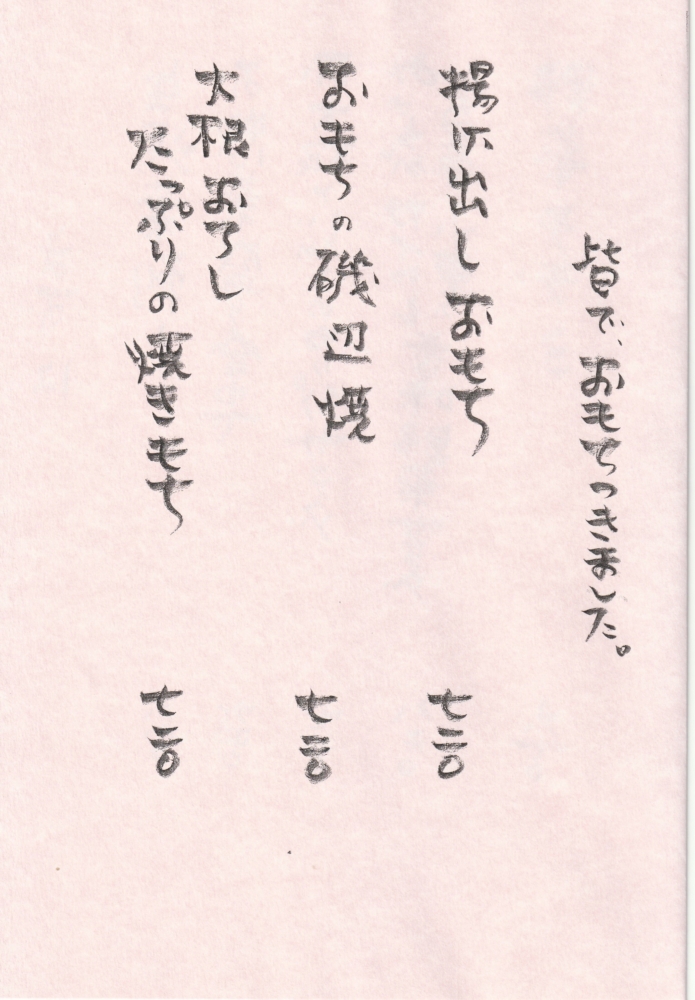 皆で、おもちつきました。
揚げ出しおもち
七二〇
おもちの磯辺焼
七二〇
大根おろし
たっぷりの焼きもち
七二〇